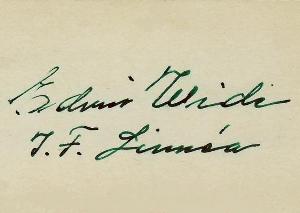 Edvin Wide
I. F. Linnéa